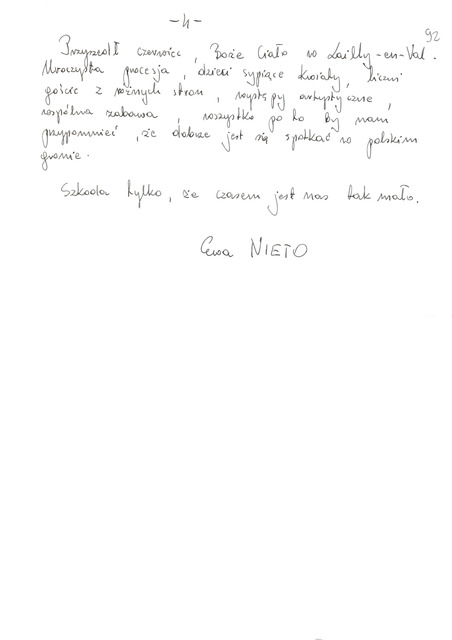 - 4 -
92
Przyszedł czerwiec, Boże Ciało w Lailly-en-Val.
Uroczysta procesja, dzieci sypiące kwiaty, liczni
goście z różnych stron, występy artystyczne,
wspólna zabawa, wszystko po to by nam
przypomnieć, że dobrze jest się spotkać w polskim
gronie.
Szkoda tylko, że czasem jest nas tak mało.
Ewa NIETO